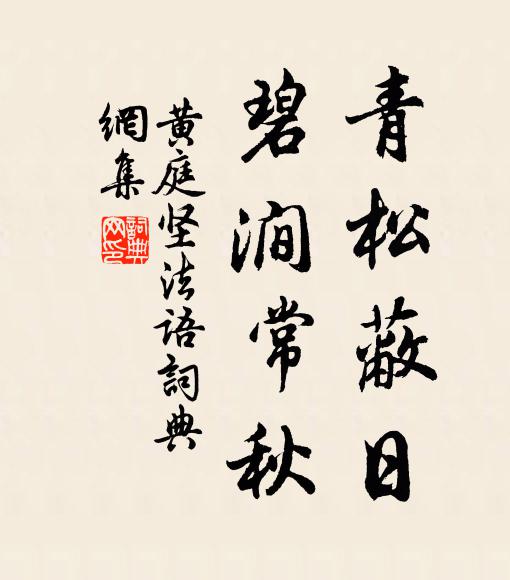 青松蔽日
碧澗常秋
黄庭坚法语詞典
網集
詞典
网印